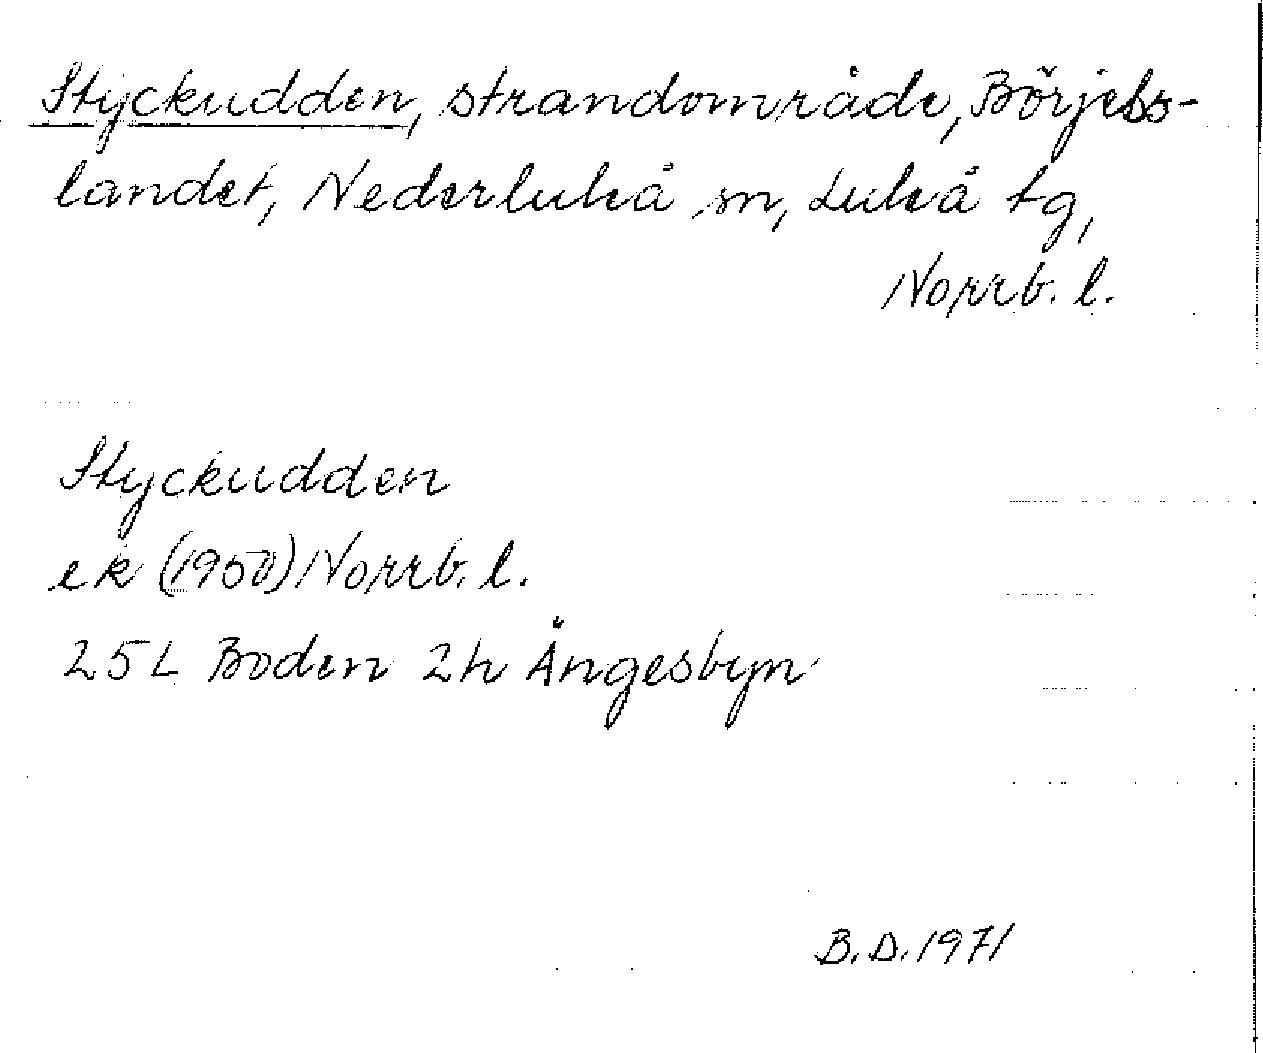 Styckudden, strandområde, Börjels-
landet, Nederluleå sn, Luleå tg,
Norrb. l.
Styckudden
ek (1950) Norrb. l.
25L Boden 2h Ängesbyn
B.D. 1971